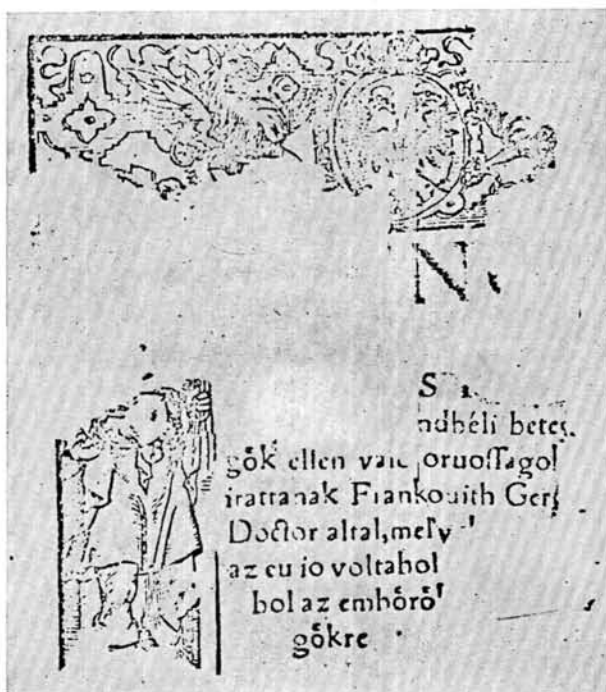 N
S
ndhéli betes
gők ellen valo oruossagol
irattanak Frankouith Ger
Doctor altal, mely
az eu io voltabol
bol az embőrő
gőkre